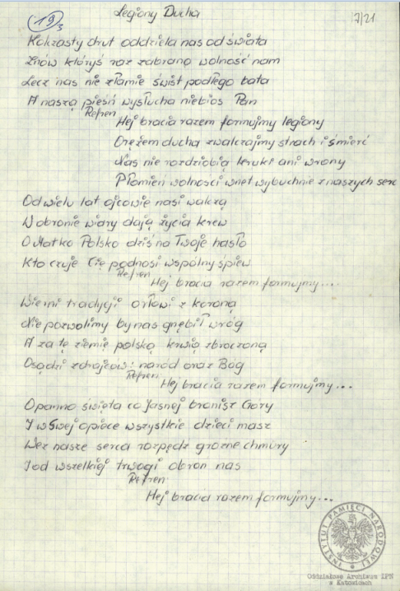 Legiony Ducha
19
7/21
Kolczasty drut oddziela nas od świata
Znów któryś raz zabrano wolność nam
Lecz nas nie złamie świst podłego bata
A naszą pieśń wysłucha niebios Pan
Refren
Hej bracia razem formujmy legiony
Orężem ducha zwalczajmy strach i śmierć
Nas nie rozdziobią kruki ani wrony
Płomień wolności wnet wybuchnie z naszych serc
Od wielu lat ojcowie nasi walczą
W obronie wiary dają życia krew
O Matko Polsko dziś na Twoje hasło
Kto czuje Cię podnosi wspólny śpiew
Refren
Hej bracia razem formujmy...
Wierni tradycji orłowi z koroną
Nie pozwolimy by nas gnębił wróg
A za tę ziemię polską krwią zbroczoną
Osądzi zdrajców naród oraz Bóg
Refren
Hej bracia razem formujmy...
O panno święta co Jasnej bronisz Góry
I w swej opiece wszystkie dzieci masz
Weź nasze serca rozpędź groźne chmury
I od wszelkiej trwogi obroń nas
Refren
Hej bracia razem formujmy...
INSTYTUT PAMIĘCI NARODOWEJ
Oddziałowe Archiwum IPN
w Katowicach